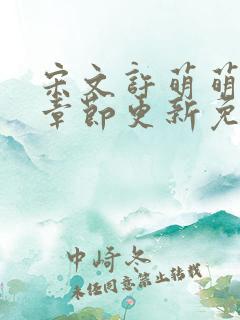 宋文許萌萌
章節更新免
中崎冬
未经同意禁止转载